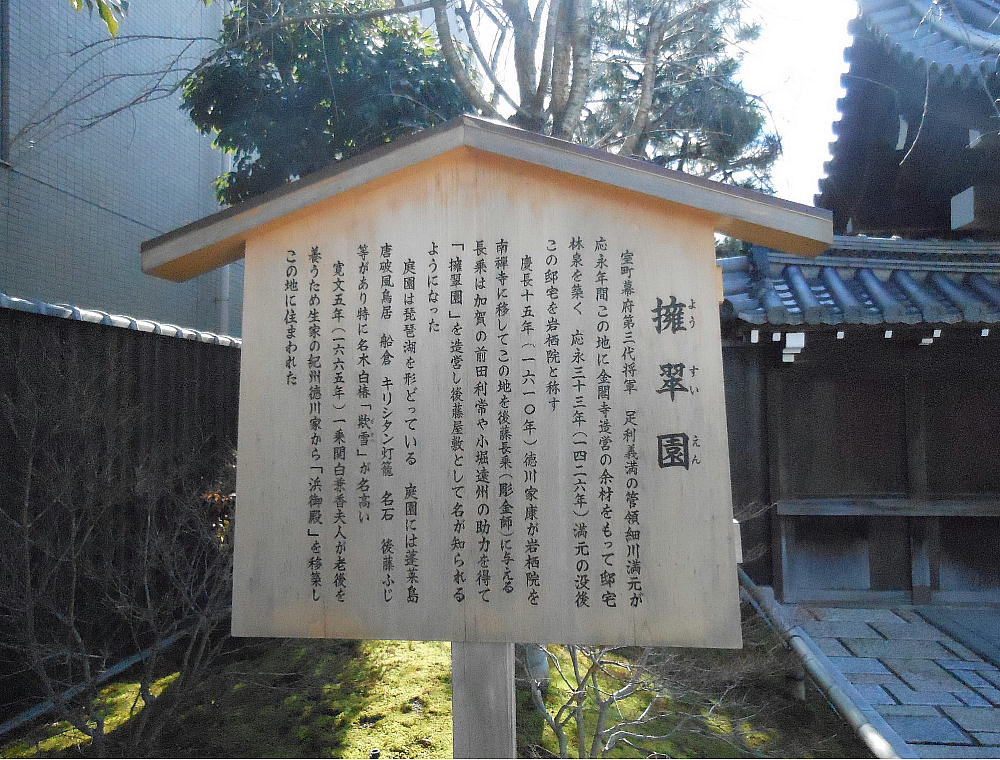 擁翠園
よう すい えん
室町幕府第三代将軍 足利義満の管領細川満元が
応永年間この地に金閣寺造営の余材をもって邸宅
林泉を築く 応永三十三年(一四二六年)満元の没後
この邸宅を岩栖院と称す
慶長十五年(一六一〇年)徳川家康が岩栖院を
南禅寺に移してこの地を後藤長乗(彫金師)に与える
長乗は加賀の前田利常や小堀遠州の助力を得て
「擁翠園」を造営し後藤屋敷として名が知られる
ようになった
庭園は琵琶湖を形どっている 庭園には蓬莱島
唐破風鳥居 船倉 キリシタン灯籠 名石 後藤ふじ
等があり特に名木白椿「歎雪」が名高い
寛文五年(一六六五年)一乗関白兼香夫人が老後を
養うため生家の紀州徳川家から「浜御殿」を移築し
この地に住まわれた